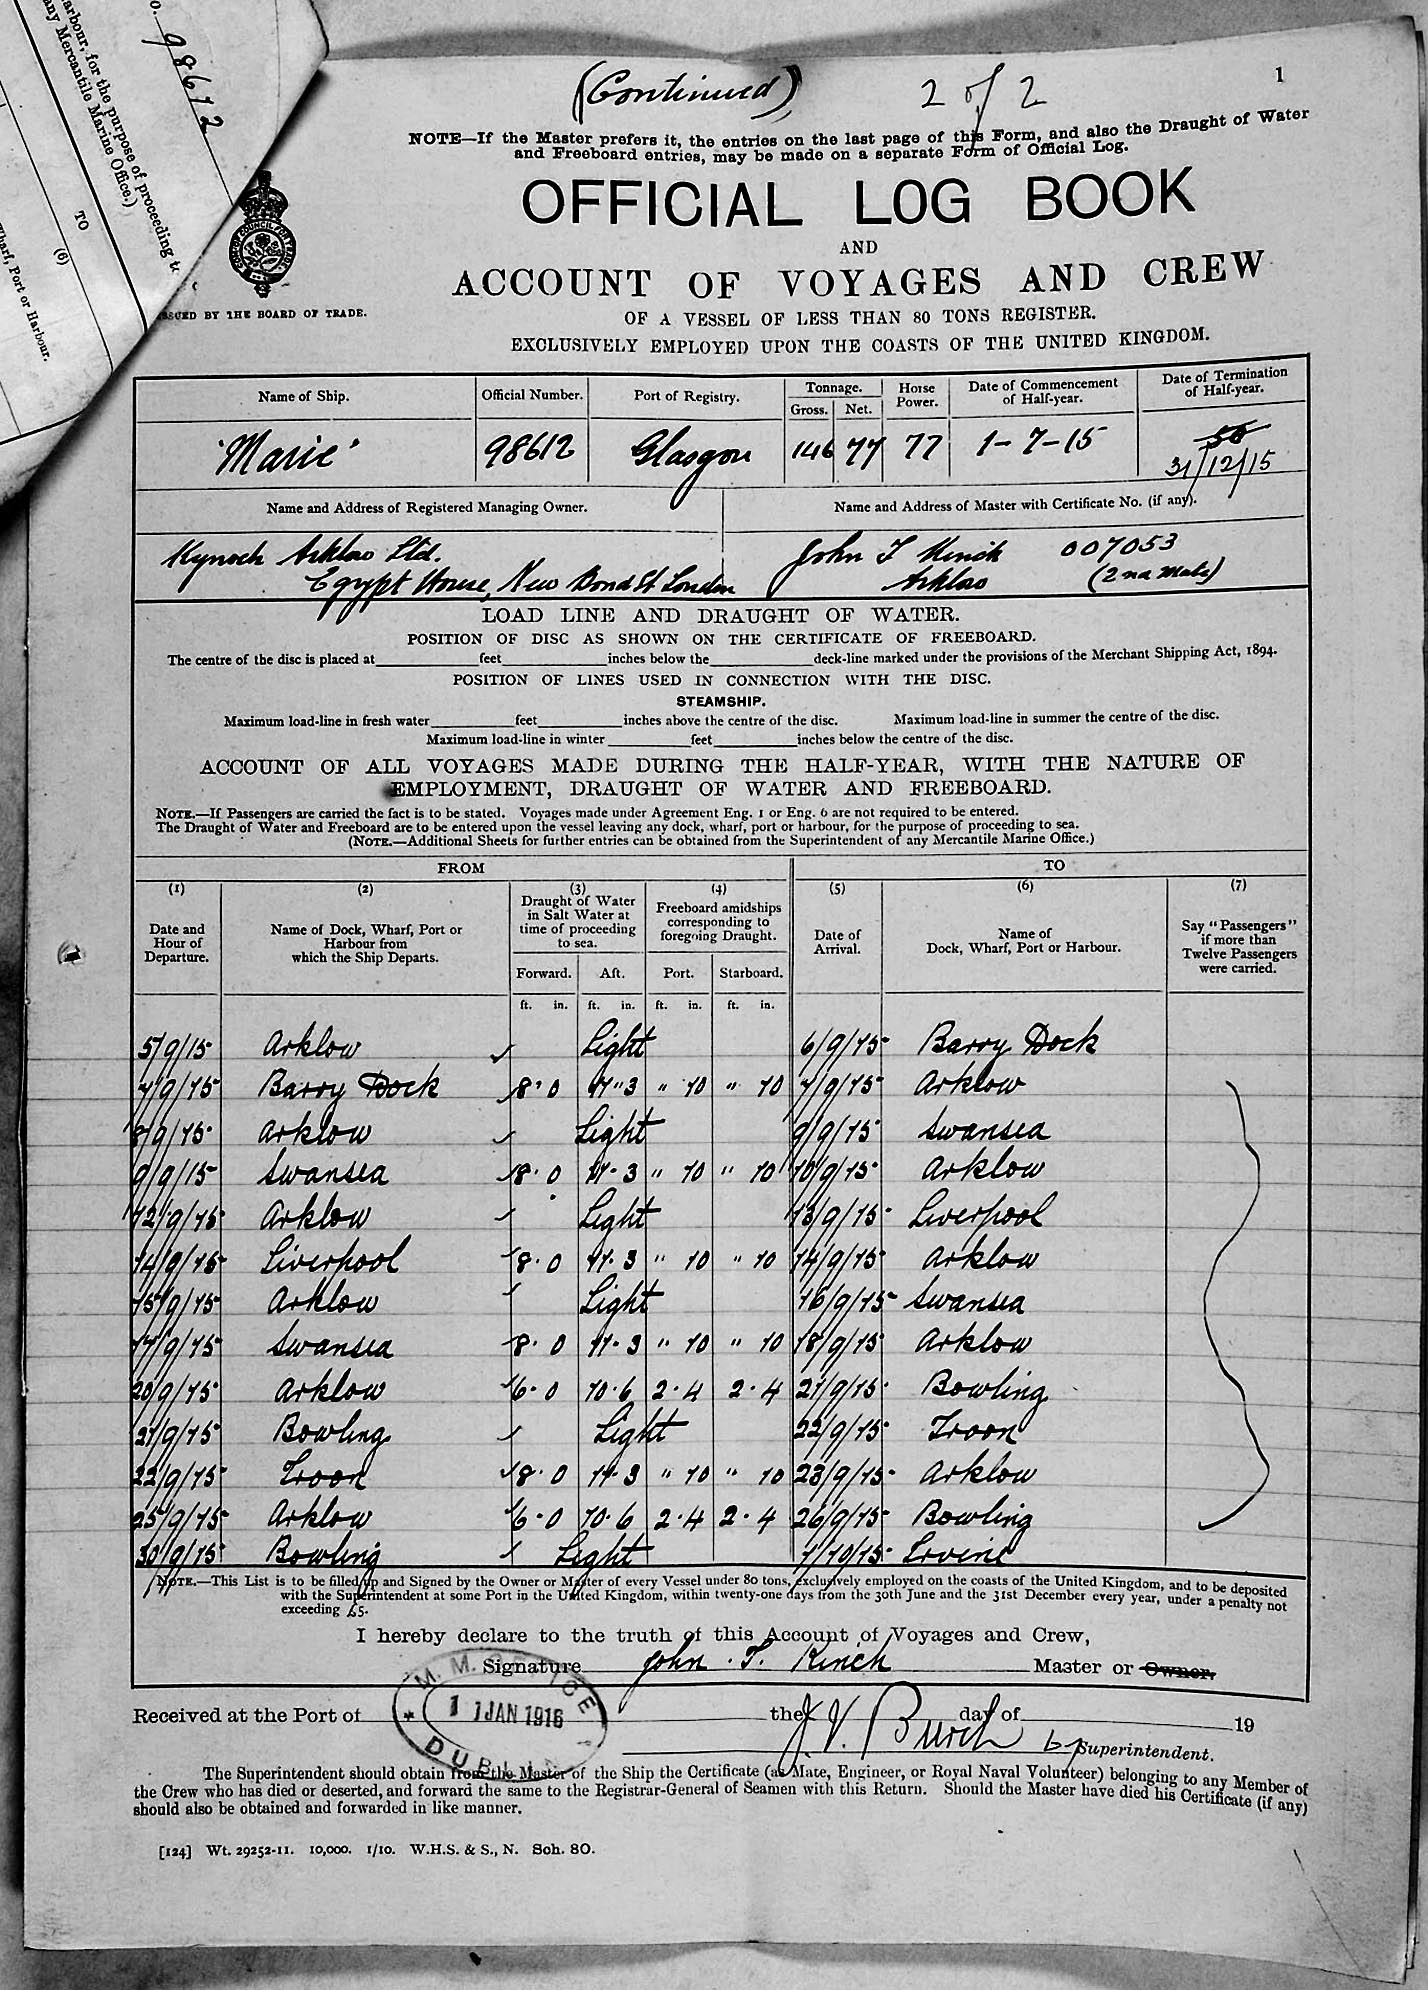 o. 98612
arbour, for the purpose of proceeding t
any Mercantile Marine Office.)
TO
(6)
harf, Port or Harbour.
(Continued) 2 of 2 1
NOTE—If the Master prefers it, the entries on the last page of this Form, and also the Draught of Water
and Freeboard entries, may be made on a separate Form of Official Log.
OFFICIAL LOG BOOK
AND
ACCOUNT OF VOYAGES AND CREW
ISSUED BY THE BOARD OF TRADE.
OF A VESSEL OF LESS THAN 80 TONS REGISTER.
EXCLUSIVELY EMPLOYED UPON THE COASTS OF THE UNITED KINGDOM.
Name of Ship. Official Number. Port of Registry. Tonnage. Gross. Net. Horse Power. Date of Commencement of Half-year. Date of Termination of Half-year.
'Marie' 98612 Glasgow 146 77 77 1-7-15 31/12/15
Name and Address of Registered Managing Owner. Name and Address of Master with Certificate No. (if any).
Kynoch Arklow Ltd. John T Kinch 007053
Egypt House, New Bond St London Arklow (2nd Mate)
LOAD LINE AND DRAUGHT OF WATER.
POSITION OF DISC AS SHOWN ON THE CERTIFICATE OF FREEBOARD.
The centre of the disc is placed at feet inches below the deck-line marked under the provisions of the Merchant Shipping Act, 1894.
POSITION OF LINES USED IN CONNECTION WITH THE DISC.
STEAMSHIP.
Maximum load-line in fresh water feet inches above the centre of the disc. Maximum load-line in summer the centre of the disc.
Maximum load-line in winter feet inches below the centre of the disc.
ACCOUNT OF ALL VOYAGES MADE DURING THE HALF-YEAR, WITH THE NATURE OF
EMPLOYMENT, DRAUGHT OF WATER AND FREEBOARD.
NOTE.—If Passengers are carried the fact is to be stated. Voyages made under Agreement Eng. 1 or Eng. 6 are not required to be entered.
The Draught of Water and Freeboard are to be entered upon the vessel leaving any dock, wharf, port or harbour, for the purpose of proceeding to sea.
(NOTE.—Additional Sheets for further entries can be obtained from the Superintendent of any Mercantile Marine Office.)
FROM TO
(1) (2) (3) (4) (5) (6) (7)
Date and Hour of Departure. Name of Dock, Wharf, Port or Harbour from which the Ship Departs. Draught of Water in Salt Water at time of proceeding to sea. Freeboard amidships corresponding to foregoing Draught. Date of Arrival. Name of Dock, Wharf, Port or Harbour. Say "Passengers" if more than Twelve Passengers were carried.
Forward. Aft. Port. Starboard.
ft. in. ft. in. ft. in. ft. in.
5/9/15 Arklow Light 6/9/15 Barry Dock
7/9/15 Barry Dock 8·0 11·3 " 10 " 10 7/9/15 Arklow
8/9/15 Arklow Light 9/9/15 Swansea
9/9/15 Swansea 8·0 11·3 " 10 " 10 10/9/15 Arklow
12/9/15 Arklow Light 13/9/15 Liverpool
14/9/15 Liverpool 8·0 11·3 " 10 " 10 14/9/15 Arklow
15/9/15 Arklow Light 16/9/15 Swansea
17/9/15 Swansea 8·0 11·3 " 10 " 10 18/9/15 Arklow
20/9/15 Arklow 6·0 10·6 2·4 2·4 21/9/15 Bowling
21/9/15 Bowling Light 22/9/15 Troon
22/9/15 Troon 8·0 11·3 " 10 " 10 23/9/15 Arklow
25/9/15 Arklow 6·0 10·6 2·4 2·4 26/9/15 Bowling
30/9/15 Bowling Light 1/10/15 Irvine
NOTE.—This List is to be filled up and Signed by the Owner or Master of every Vessel under 80 tons, exclusively employed on the coasts of the United Kingdom, and to be deposited
with the Superintendent at some Port in the United Kingdom, within twenty-one days from the 30th June and the 31st December every year, under a penalty not
exceeding £5.
I hereby declare to the truth of this Account of Voyages and Crew,
Signature John T. Kinch Master or Owner.
M. M. OFFICE
11 JAN 1916
DUBLIN
Received at the Port of the day of 19
J. V. Burch Superintendent.
The Superintendent should obtain from the Master of the Ship the Certificate (as Mate, Engineer, or Royal Naval Volunteer) belonging to any Member of
the Crew who has died or deserted, and forward the same to the Registrar-General of Seamen with this Return. Should the Master have died his Certificate (if any)
should also be obtained and forwarded in like manner.
[124] Wt. 29252-11. 10,000. 1/10. W.H.S. & S., N. Sch. 80.